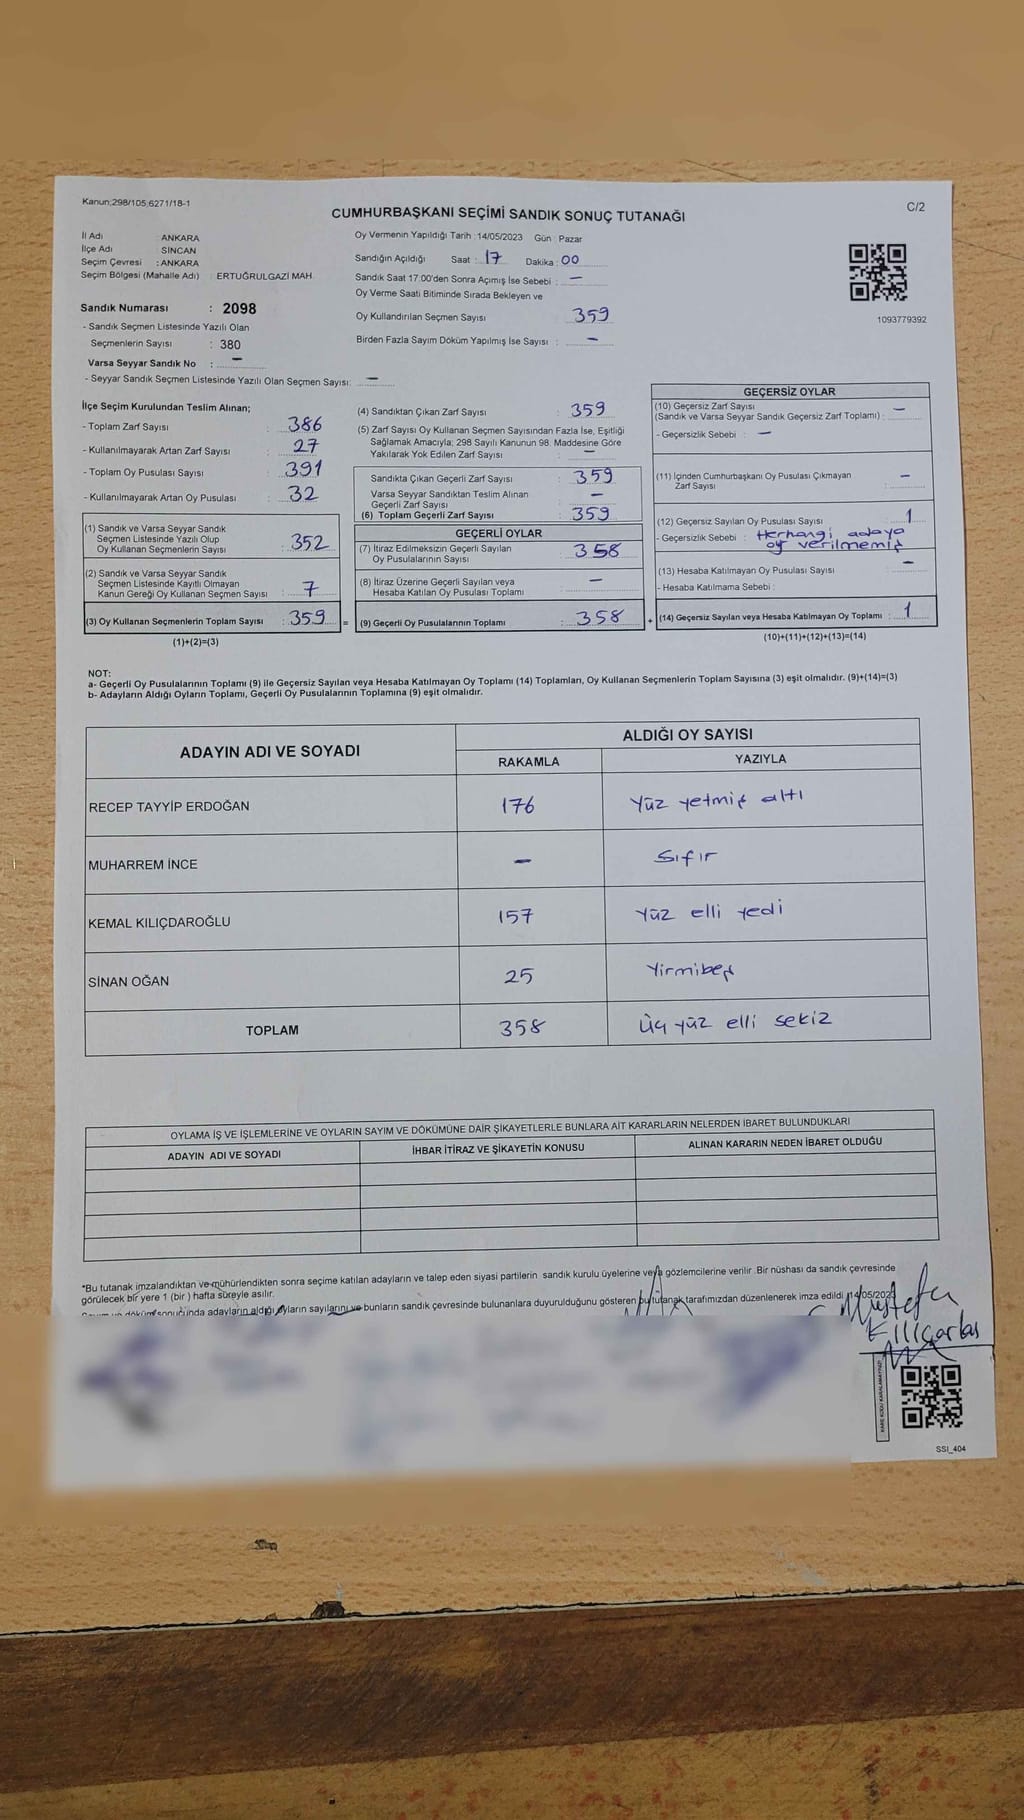 Kanun;298/105;6271/18-1
C/2
CUMHURBAŞKANI SEÇİMİ SANDIK SONUÇ TUTANAĞI
İl Adı : ANKARA
İlçe Adı : SİNCAN
Seçim Çevresi : ANKARA
Seçim Bölgesi (Mahalle Adı) : ERTUĞRULGAZİ MAH.
Sandık Numarası : 2098
- Sandık Seçmen Listesinde Yazılı Olan
Seçmenlerin Sayısı : 380
Varsa Seyyar Sandık No : –
- Seyyar Sandık Seçmen Listesinde Yazılı Olan Seçmen Sayısı: –
Oy Vermenin Yapıldığı Tarih : 14/05/2023 Gün : Pazar
Sandığın Açıldığı Saat : 17 Dakika : 00
Sandık Saat 17:00'den Sonra Açımış İse Sebebi : –
Oy Verme Saati Bitiminde Sırada Bekleyen ve
Oy Kullandırılan Seçmen Sayısı 359
Birden Fazla Sayım Döküm Yapılmış İse Sayısı : –
1093779392
İlçe Seçim Kurulundan Teslim Alınan;
- Toplam Zarf Sayısı : 386
- Kullanılmayarak Artan Zarf Sayısı : 27
- Toplam Oy Pusulası Sayısı : 391
- Kullanılmayarak Artan Oy Pusulası : 32
(1) Sandık ve Varsa Seyyar Sandık
Seçmen Listesinde Yazılı Olup
Oy Kullanan Seçmenlerin Sayısı : 352
(2) Sandık ve Varsa Seyyar Sandık
Seçmen Listesinde Kayıtlı Olmayan
Kanun Gereği Oy Kullanan Seçmen Sayısı : 7
(3) Oy Kullanan Seçmenlerin Toplam Sayısı : 359 =
(1)+(2)=(3)
(4) Sandıktan Çıkan Zarf Sayısı : 359
(5) Zarf Sayısı Oy Kullanan Seçmen Sayısından Fazla İse, Eşitliği
Sağlamak Amacıyla; 298 Sayılı Kanunun 98. Maddesine Göre
Yakılarak Yok Edilen Zarf Sayısı : –
Sandıkta Çıkan Geçerli Zarf Sayısı : 359
Varsa Seyyar Sandıktan Teslim Alınan
Geçerli Zarf Sayısı : –
(6) Toplam Geçerli Zarf Sayısı : 359
GEÇERLİ OYLAR
(7) İtiraz Edilmeksizin Geçerli Sayılan
Oy Pusulalarının Sayısı : 358
(8) İtiraz Üzerine Geçerli Sayılan veya
Hesaba Katılan Oy Pusulası Toplamı : –
(9) Geçerli Oy Pusulalarının Toplamı : 358 +
GEÇERSİZ OYLAR
(10) Geçersiz Zarf Sayısı
(Sandık ve Varsa Seyyar Sandık Geçersiz Zarf Toplamı) : –
- Geçersizlik Sebebi : –
(11) İçinden Cumhurbaşkanı Oy Pusulası Çıkmayan
Zarf Sayısı : –
(12) Geçersiz Sayılan Oy Pusulası Sayısı : 1
- Geçersizlik Sebebi : Herhangi adaya
oy verilmemiş
(13) Hesaba Katılmayan Oy Pusulası Sayısı –
- Hesaba Katılmama Sebebi :
(14) Geçersiz Sayılan veya Hesaba Katılmayan Oy Toplamı : 1
(10)+(11)+(12)+(13)=(14)
NOT:
a- Geçerli Oy Pusulalarının Toplamı (9) ile Geçersiz Sayılan veya Hesaba Katılmayan Oy Toplamı (14) Toplamları, Oy Kullanan Seçmenlerin Toplam Sayısına (3) eşit olmalıdır. (9)+(14)=(3)
b- Adayların Aldığı Oyların Toplamı, Geçerli Oy Pusulalarının Toplamına (9) eşit olmalıdır.
ADAYIN ADI VE SOYADI ALDIĞI OY SAYISI
RAKAMLA YAZIYLA
RECEP TAYYİP ERDOĞAN 176 Yüz yetmiş altı
MUHARREM İNCE – Sıfır
KEMAL KILIÇDAROĞLU 157 Yüz elli yedi
SİNAN OĞAN 25 Yirmibeş
TOPLAM 358 Üç yüz elli sekiz
OYLAMA İŞ VE İŞLEMLERİNE VE OYLARIN SAYIM VE DÖKÜMÜNE DAİR ŞİKAYETLERLE BUNLARA AİT KARARLARIN NELERDEN İBARET BULUNDUKLARI
ADAYIN ADI VE SOYADI İHBAR İTİRAZ VE ŞİKAYETİN KONUSU ALINAN KARARIN NEDEN İBARET OLDUĞU
*Bu tutanak imzalandıktan ve mühürlendikten sonra seçime katılan adayların ve talep eden siyasi partilerin sandık kurulu üyelerine veya gözlemcilerine verilir. Bir nüshası da sandık çevresinde
görülecek bir yere 1 (bir ) hafta süreyle asılır.
sonucunda adayların aldığı oyların sayılarını ve bunların sandık çevresinde bulunanlara duyurulduğunu gösteren bu tutanak tarafımızdan düzenlenerek imza edildi. 14/05/2023
Mustafa
Kılıçarlas
SSI_404